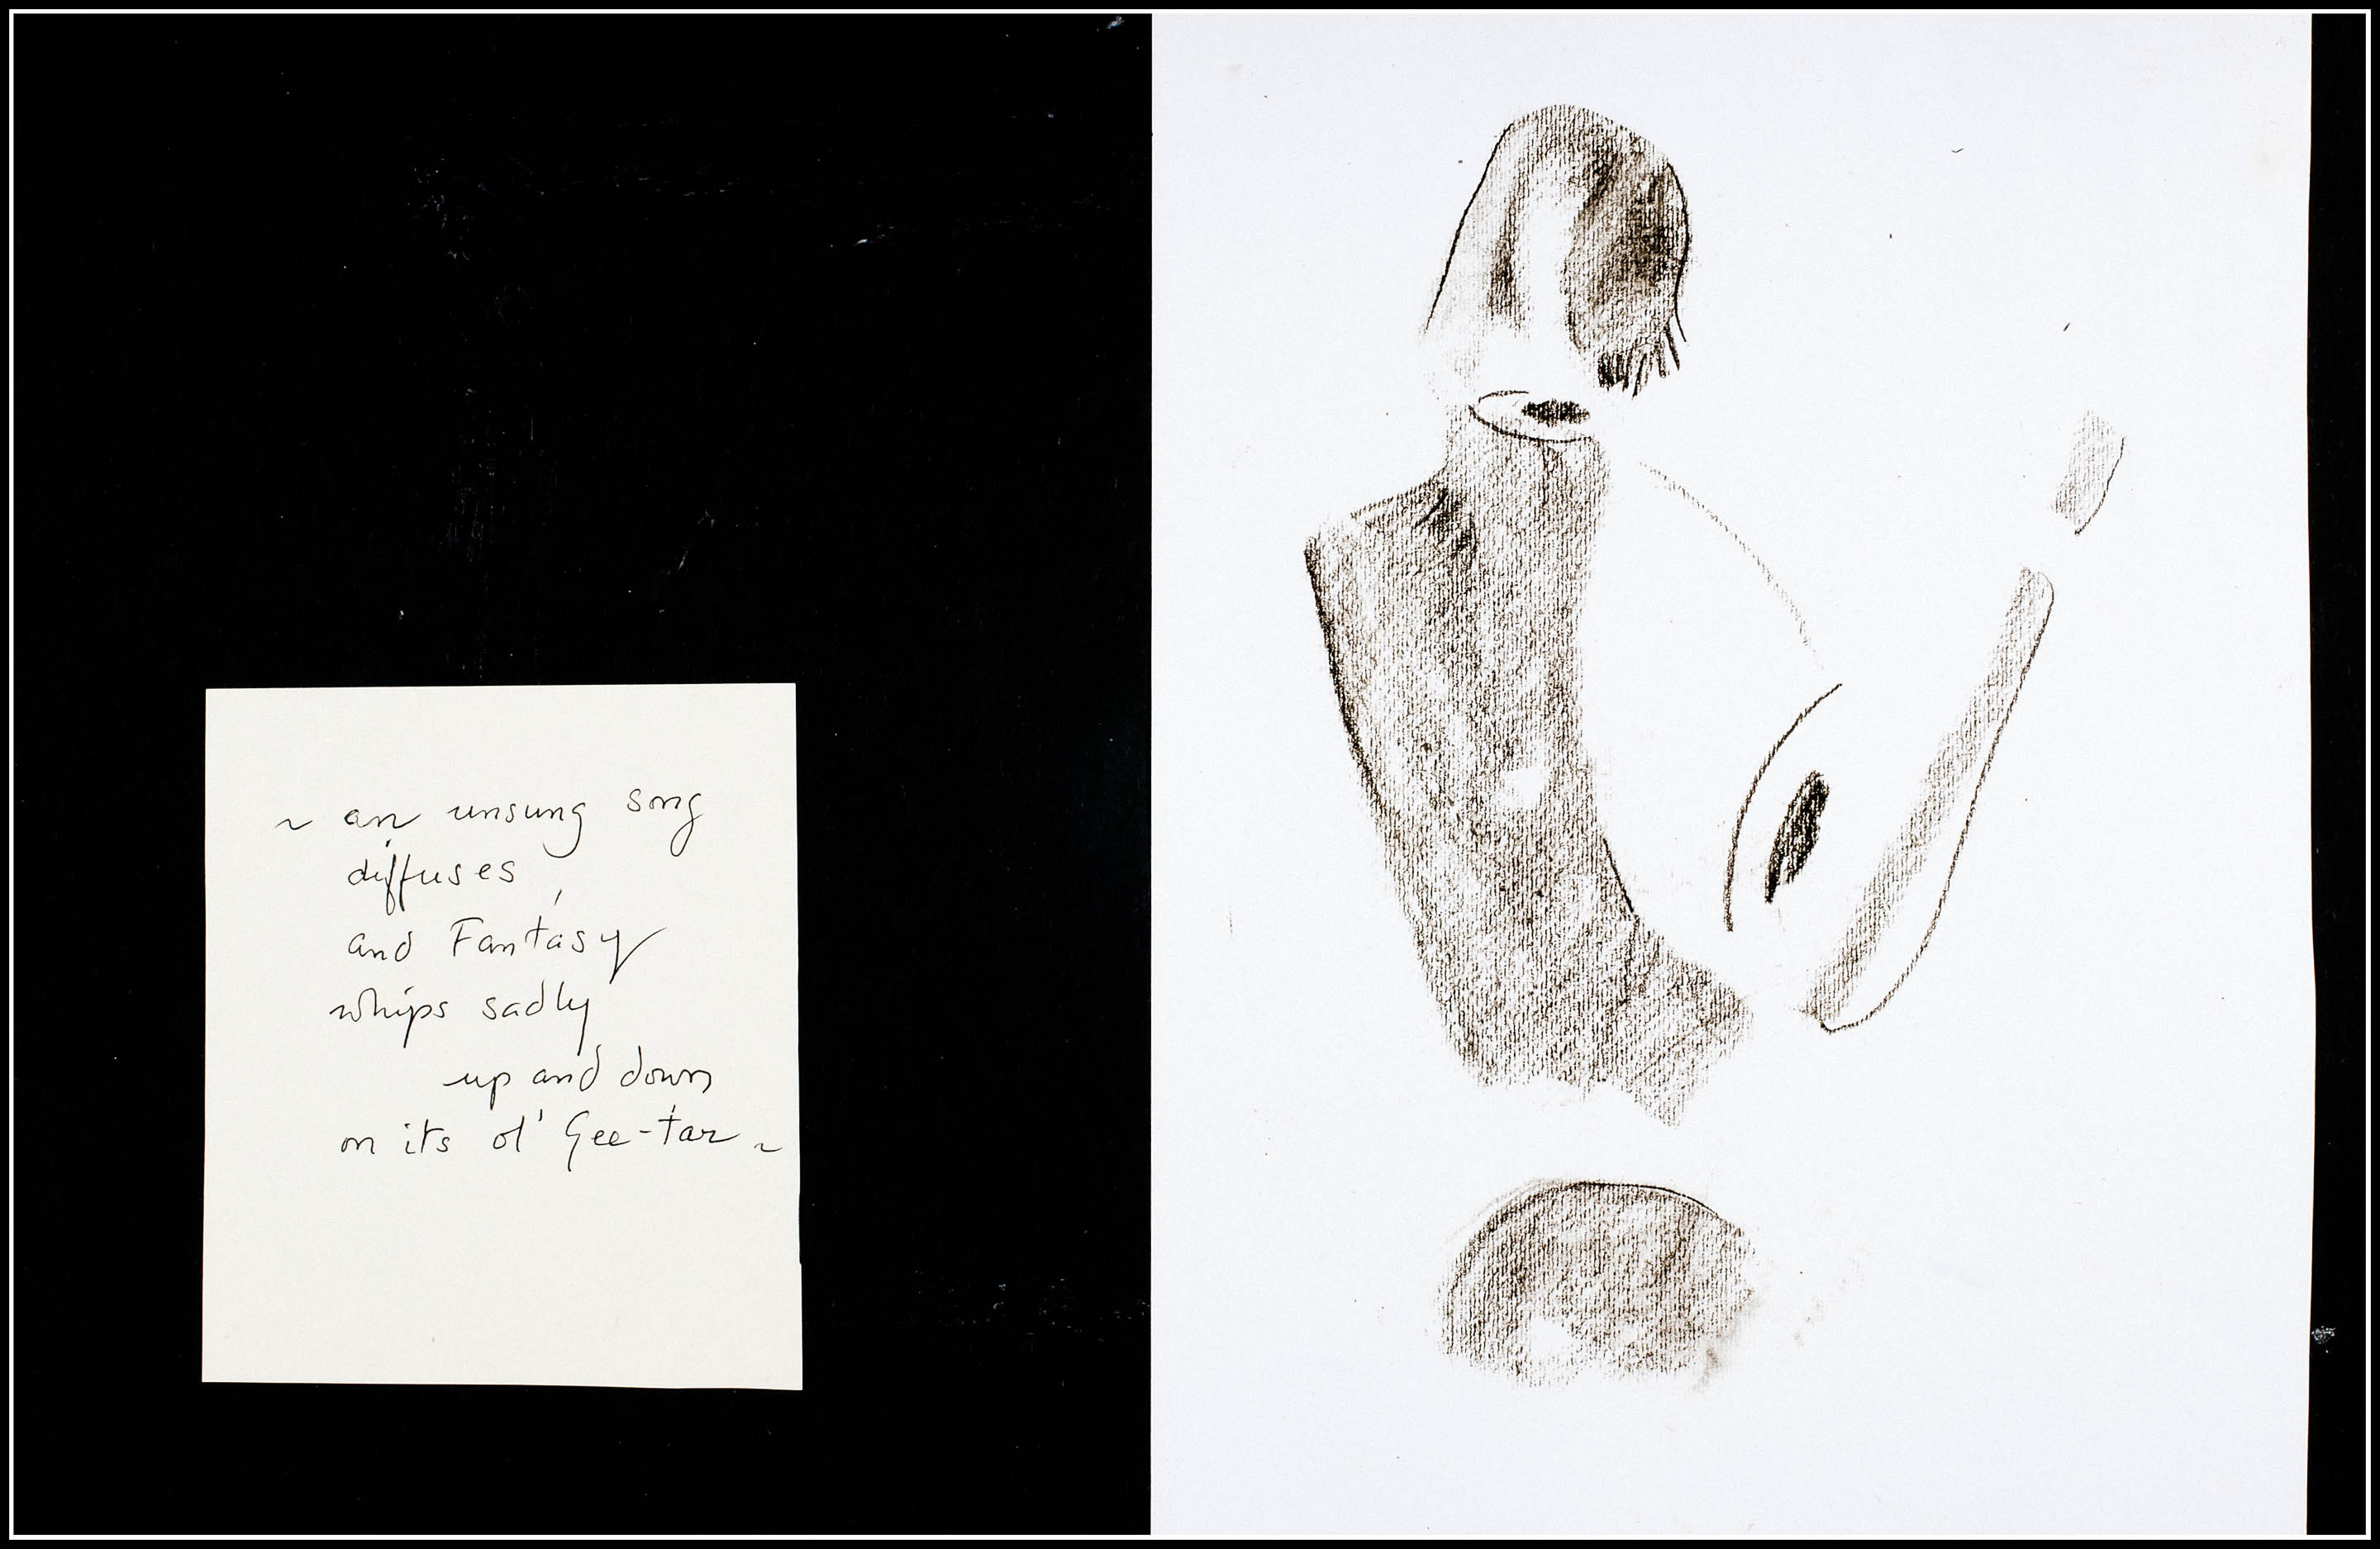 ~ an unsung song
diffuses
and Fantasy
whips sadly
up and down
on its ol' Gee-tar ~